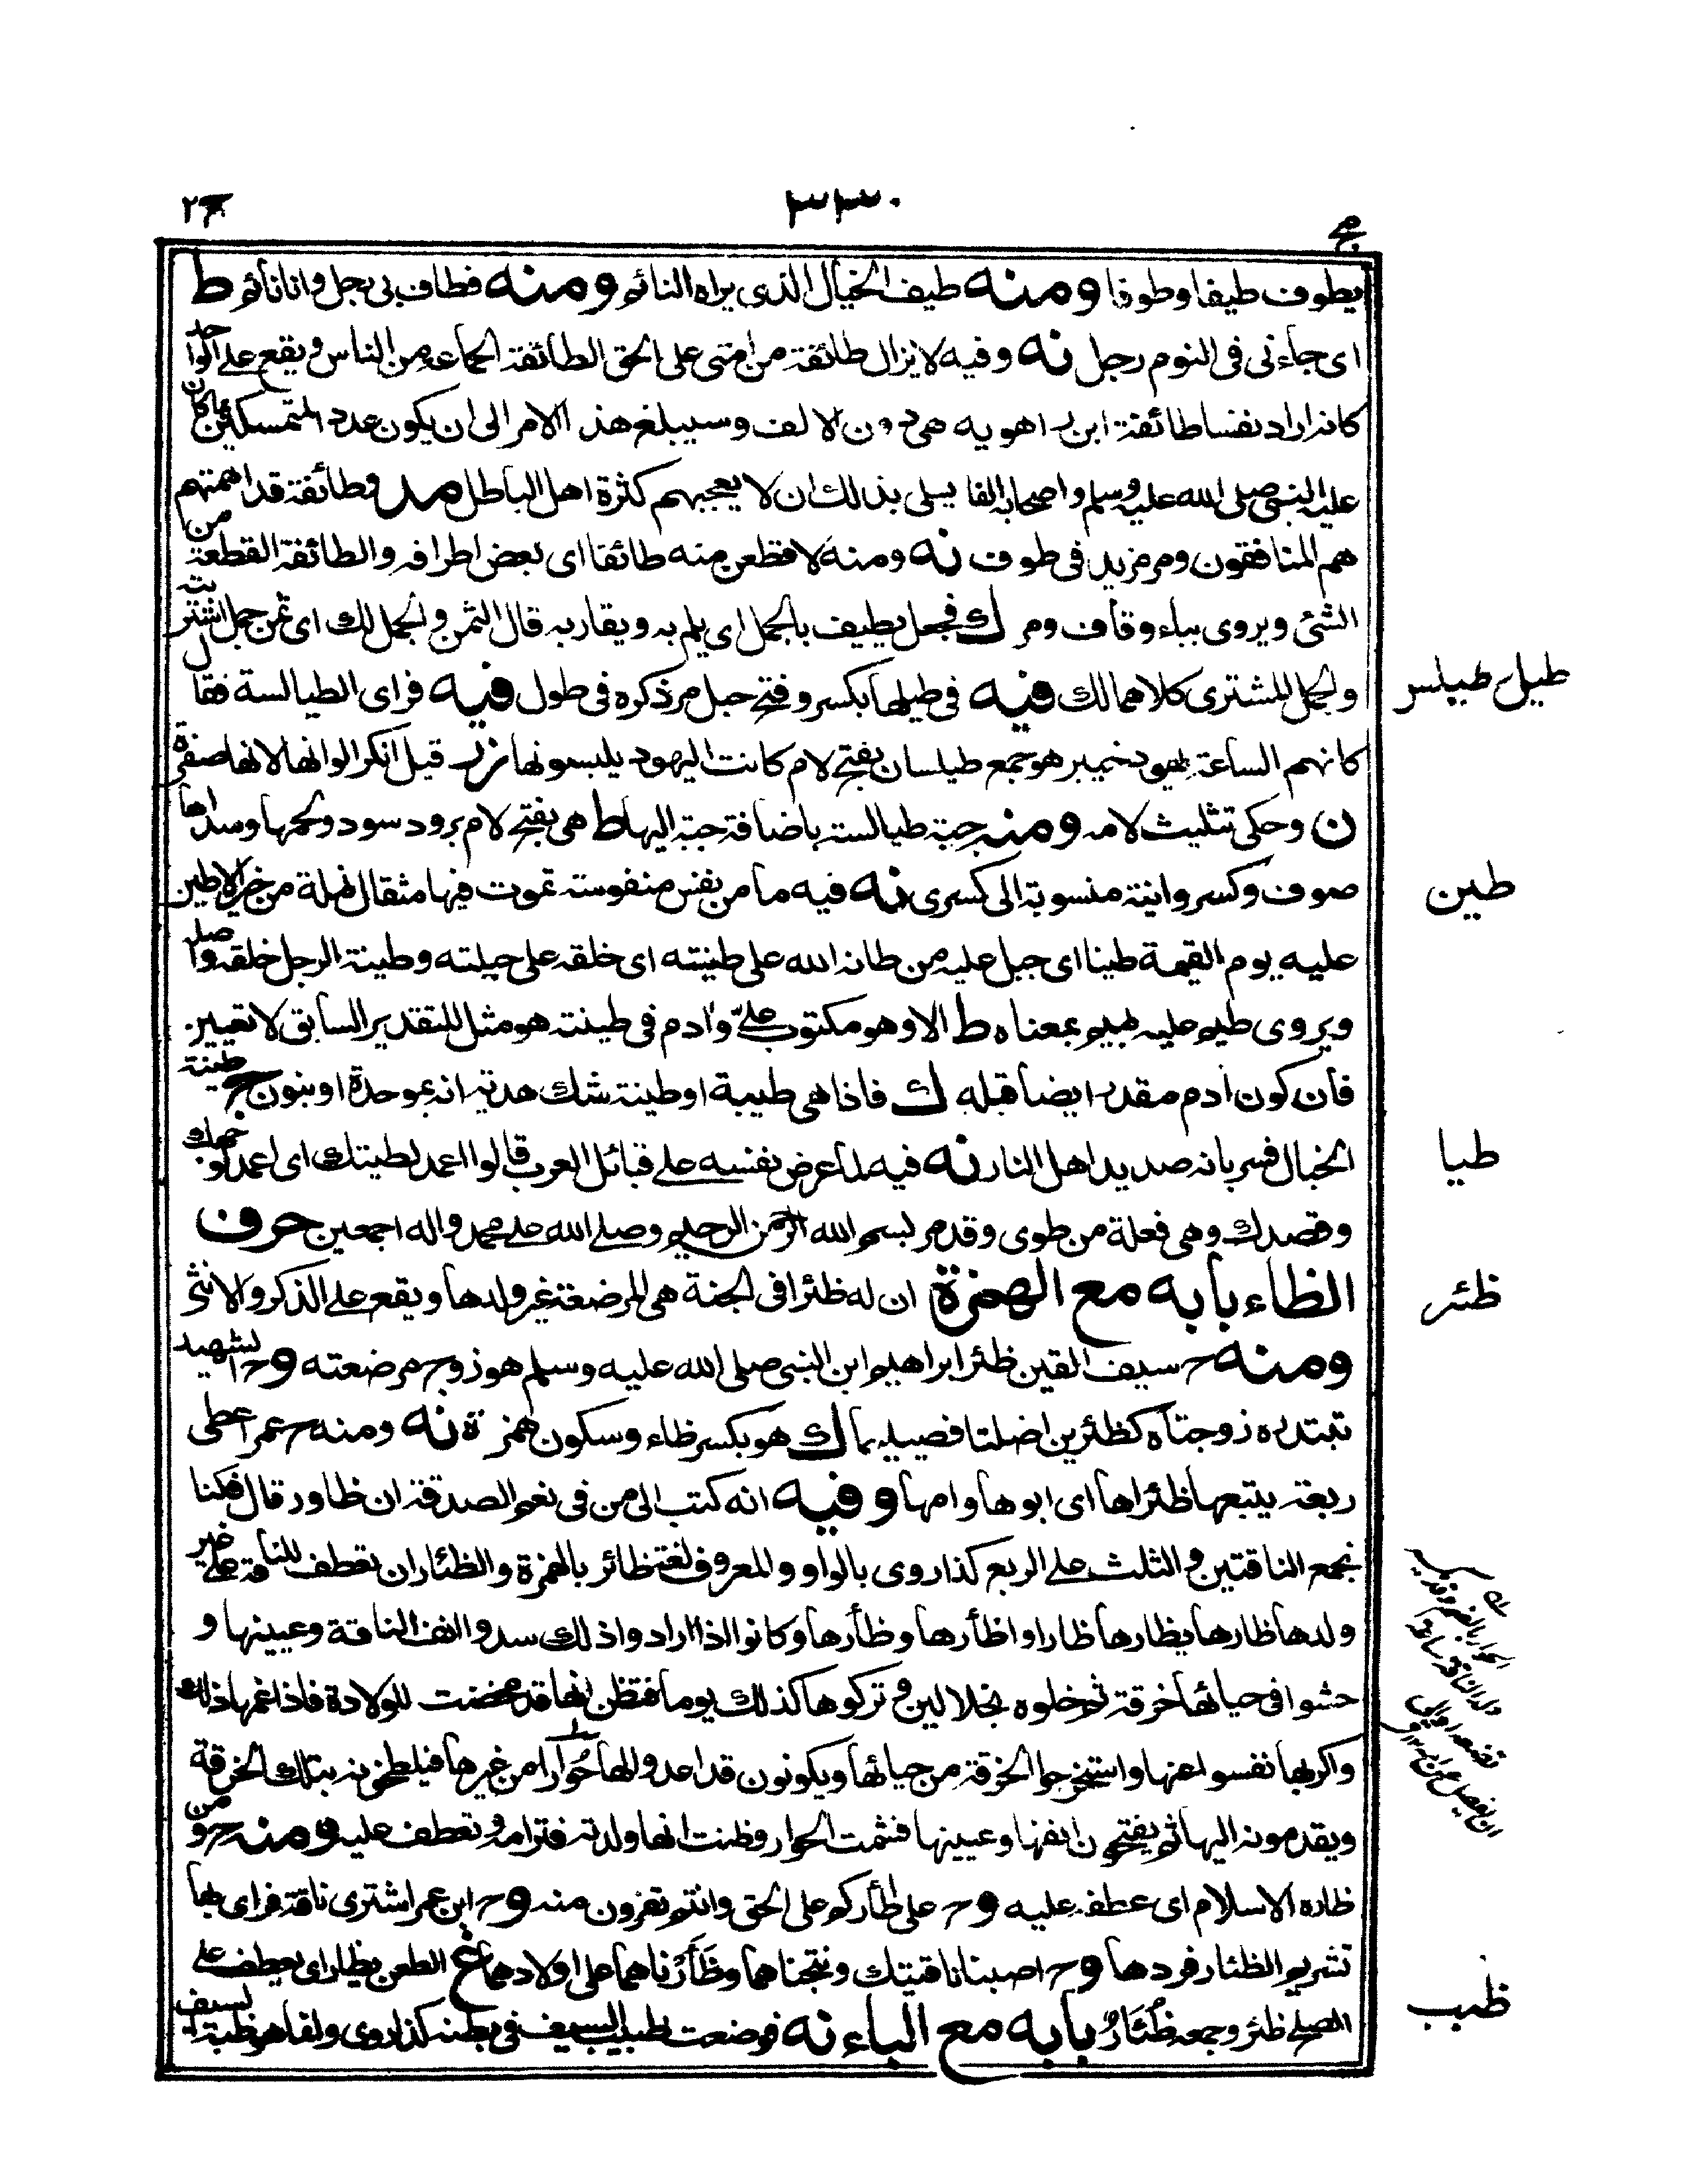 ٣٣٠
يطوف طيفا وطوفا ومنه طيف الخيال الذى يراه النائم ومنه فطاف بى رجل وانا نائم ط
اى جاءنى فى النوم رجل نه وفيه لا يزال طائفة من امتى على الحق الطائفة الجماعة من الناس ويقع على الواحد
كانه اراد نفسا طائفة ابن راهويه هى دون الالف وسيبلغ هذا الامر الى ان يكون عدد المتمسكين بما كان
عليه النبى صلى الله عليه وسلم واصحابه الفا يسلى بذلك ان لا يعجبهم كثرة اهل الباطل مد وطائفة قد اهمتهم
هم المنافقون ومر مزيد فى طوف نه ومنه لاقطعن منه طائفا اى بعض اطرافه والطائفة القطعة من
الشئ ويروى بباء وقاف ومر ك فجعل يطيف بالجمل اى يلم به ويقاربه قال الثمن والجمل لك اى ثمن جمل اشتريته
والجمل للمشترى كلاهما لك فيه فى طيلها بكسر وفتح حبل مر ذكره فى طول فيه فراى الطيالسة فقال
كانهم الساعة يهود خيبر هو جمع طيلسان بفتح لام كانت اليهود يلبسونها زر قيل انكر الوانها لانها صفرة
ن وحكى تثليث لامه ومنه جبة طيالسة باضافة جبة اليها ط هى بفتح لام برود سود ولحمها وسداها
صوف وكسروانية منسوبة الى كسرى نه فيه ما من نفس منفوسة تموت فيها مثقال نملة من خير الا طين
عليه يوم القيمة طينا اى جبل عليه من طانه الله على طينته اى خلقه على جبلته وطينة الرجل خلقه واصله
ويروى طيم عليه بميم بمعناه ط الا وهو مكتوب على وادم فى طينته هو مثل للتقدير السابق لا تعيين
فان كون ادم مقدر ايضا قبله ك فاذا هى طيبة او طينة شك هدبة انه بموحدة او بنون ج طينة
الخبال فسر بانه صديد اهل النار نه فيه لما عرض نفسه على قبائل العرب قالوا اعمد لطيتك اى اعمد لوجهك
وقصدك وهى فعلة من طوى وقد مر بسم الله الرحمن الرحيم وصلى الله على محمد واله اجمعين حرف
الظاء بابه مع الهمزة ان له ظئرا فى الجنة هى المرضعة غير ولدها ويقع على الذكر والانثى
ومنه ح سيف القين ظئر ابراهيم ابن النبى صلى الله عليه وسلم هو زوج مرضعته وح الشهيد
تبتدره زوجتاه كظئرين اضلتا فصيليهما ك هو بكسر ظاء وسكون همزة نه ومنه ح عمر اعطى
ربعة يتبعها ظئراها اى ابوها وامها وفيه انه كتب الى من فى نعم الصدقة ان ظاور قال فكنا
نجمع الناقتين والثلث على الربع كذا روى بالواو والمعروف لغة ظائر بالهمزة والظئار ان تعطف الناقة على غير
ولدها ظارها يظارها ظارا واظأرها وظأرها وكانوا اذا ارادوا ذلك سدوا انف الناقة وعينيها و
حشوا فى حيائها خرقة ثم خلوه بخلالين وتركوها كذلك يوما فتظن انها قد مخضت للولادة فاذا غمها ذلك
واكربها نفسوا عنها واستخرجوا الخرقة من حيائها ويكونون قد اعدوا لها حوارا من غيرها فيلطخونه بتلك الخرقة
ويقدمونه اليها ثم يفتحون انفها وعينيها فشمت الحوار وظنت انها ولدته فترامه وتعطف عليه ومنه ح ومن
ظاره الاسلام اى عطفه عليه وح على اظأركم على الحق وانتم تفرون منه وح ابن عمر اشترى ناقة فراى بها
تشريم الظئار فردها وح اصبنا ناقتيك ونتجناهما وظأرناهما على اولادهما غ الطعن يظار اى يعطف على
الصلح ظئر وجمعه ظئار بابه مع الباء نه فوضعت ظبيب السيف فى بطنه كذا روى ولقاهم ظبة السيف
طيل طيلس
طين
طيا
ظئر
ظبب